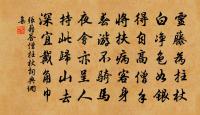 靈藤為拄杖
白淨色如銀
得自高僧手
將扶病客身
春游不騎馬
夜會亦呈人
持此歸山去
深宜戴角巾
張籍答僧拄杖詞典網
集